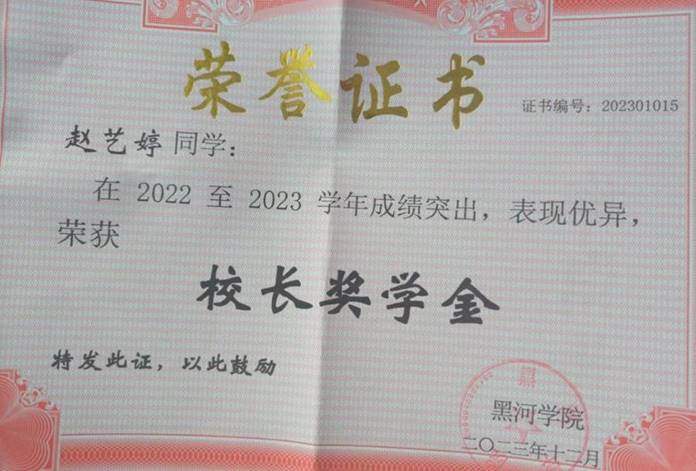 荣誉证书
证书编号：202301015
赵艺婷 同学：
在 2022 至 2023 学年成绩突出，表现优异，
荣获
校长奖学金
特发此证，以此鼓励
黑河学院
二〇二三年十二月